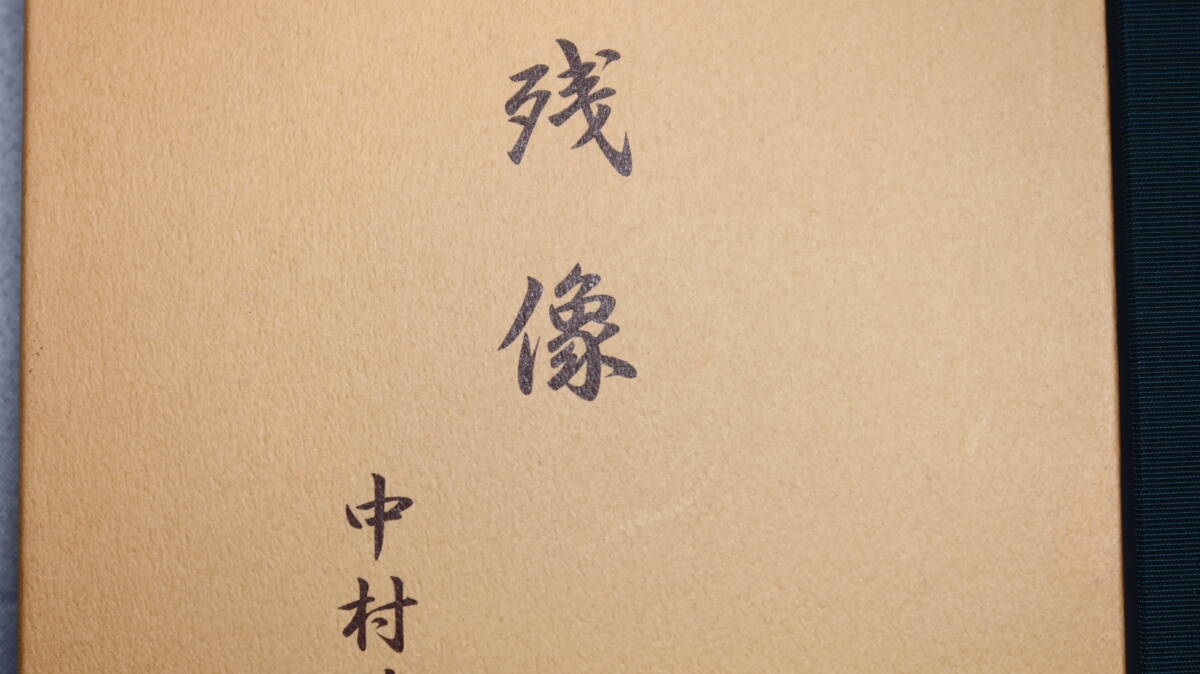 残像
中村